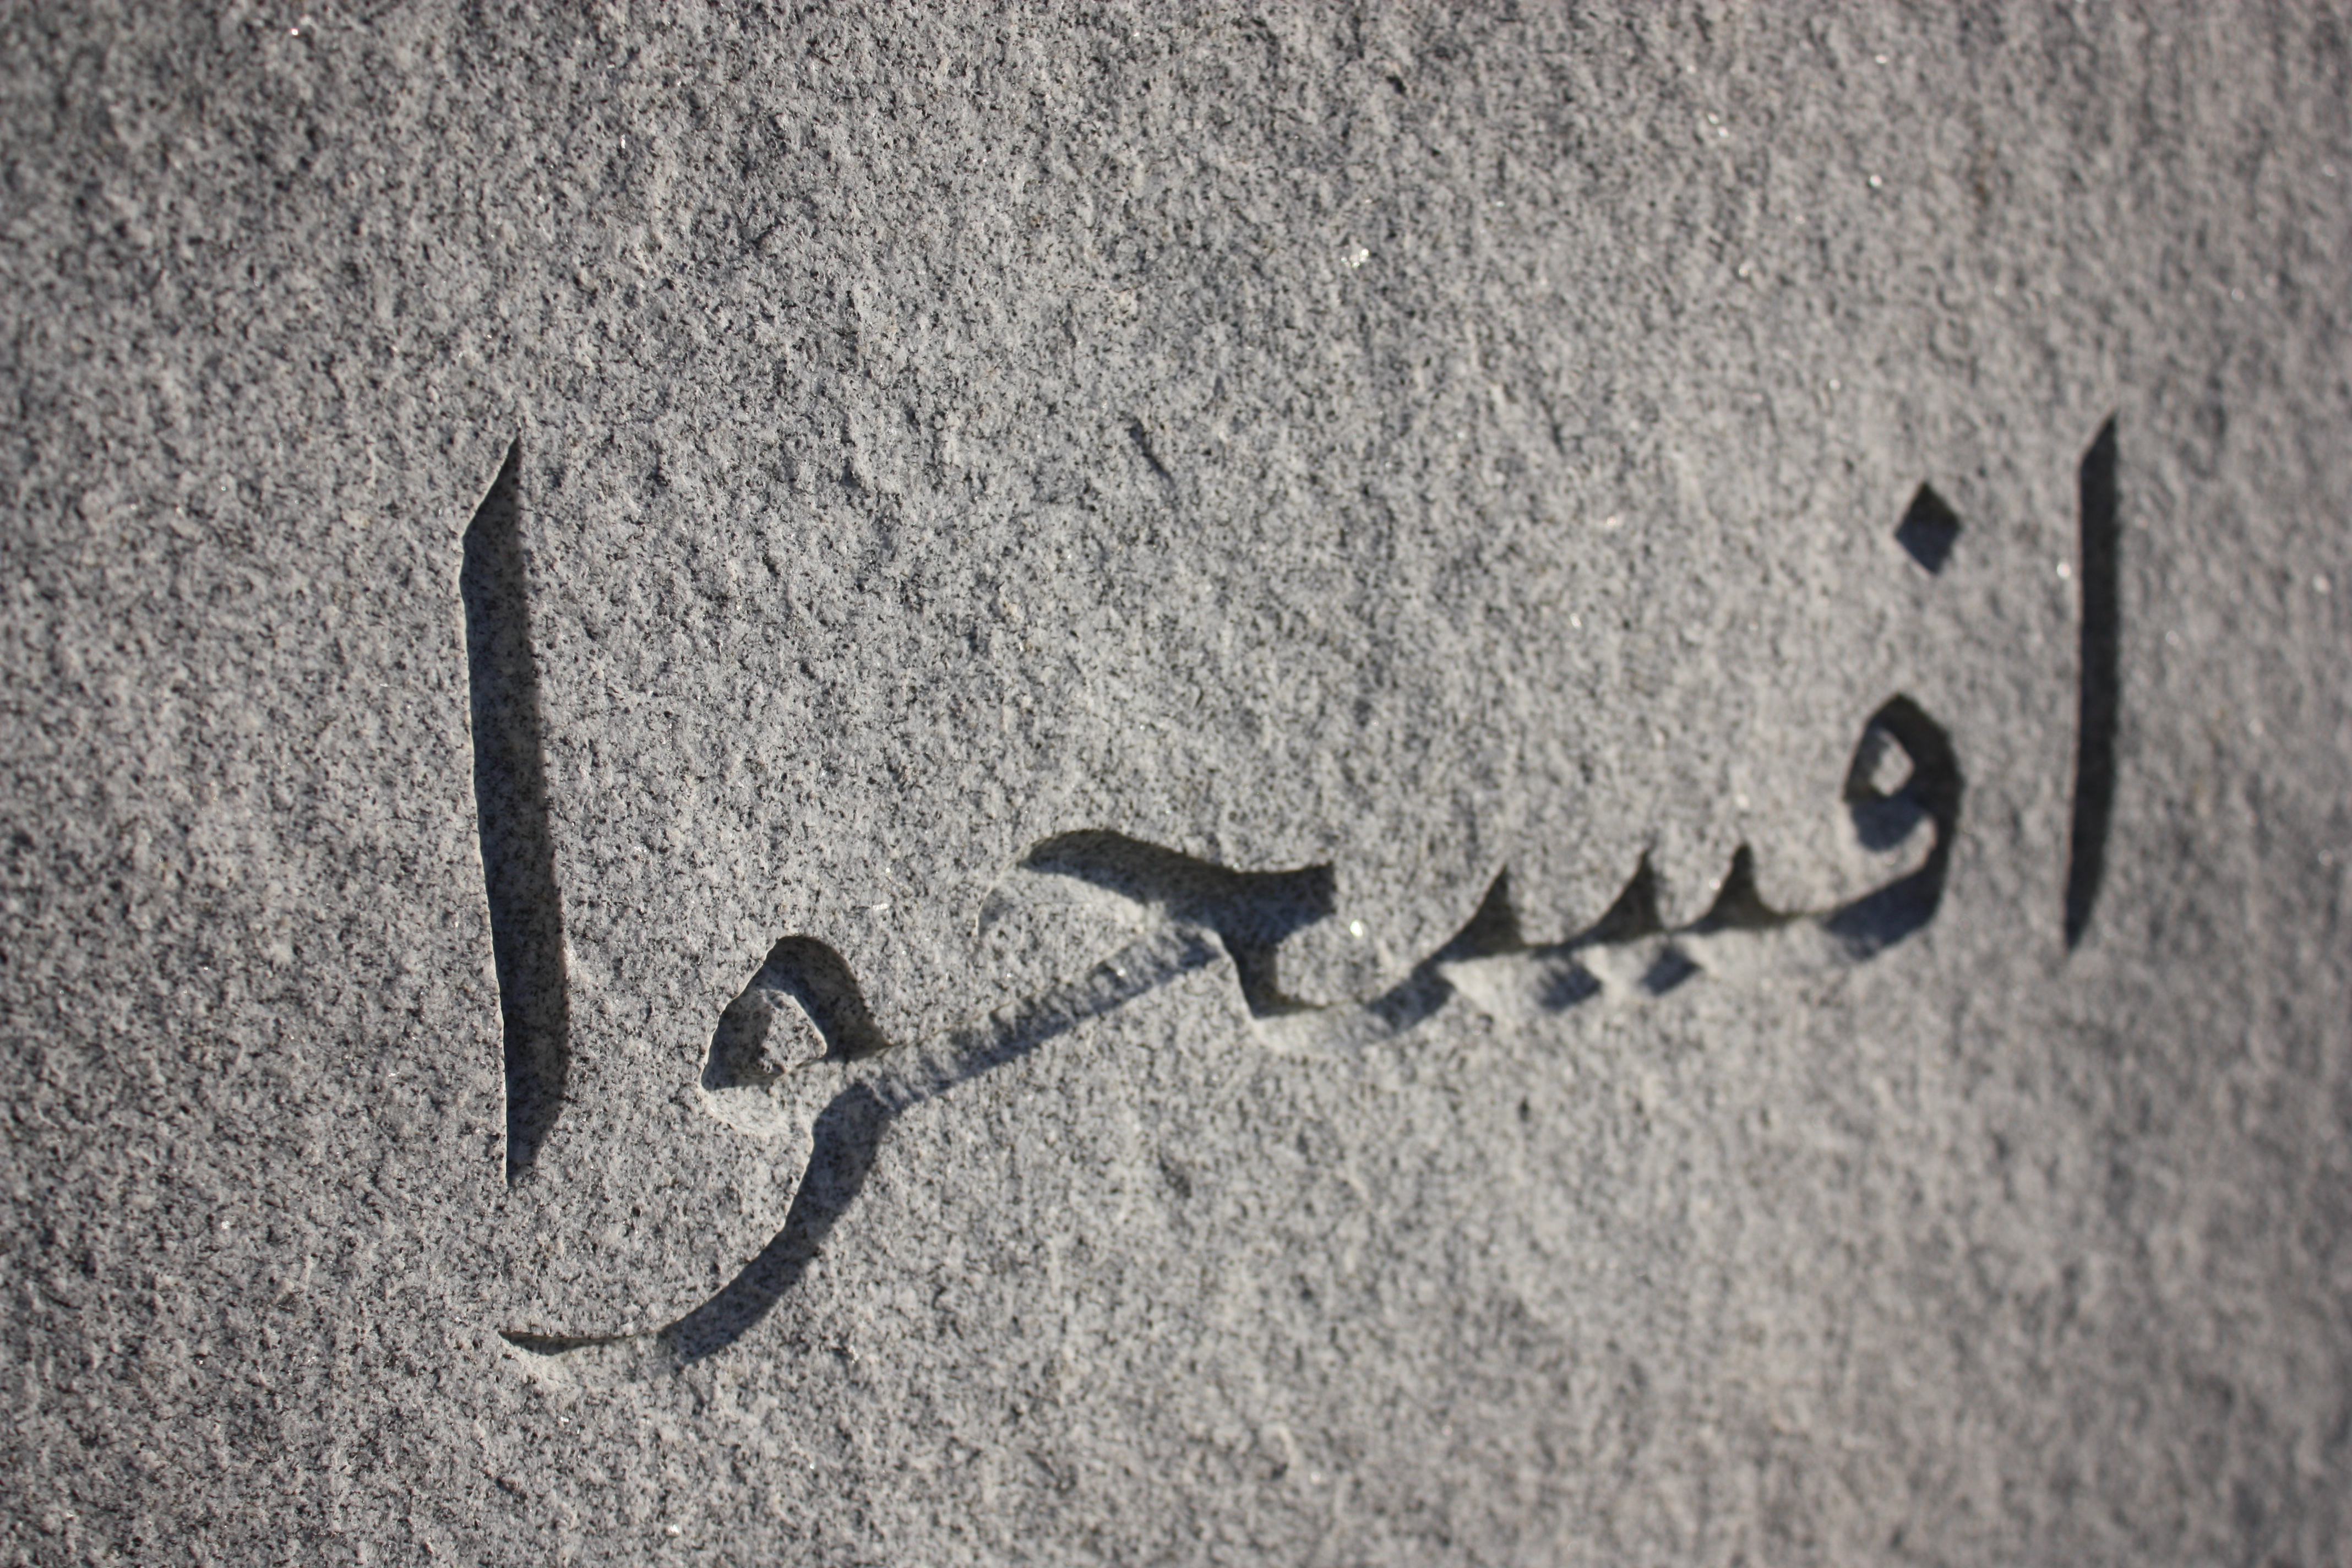 افسحوا